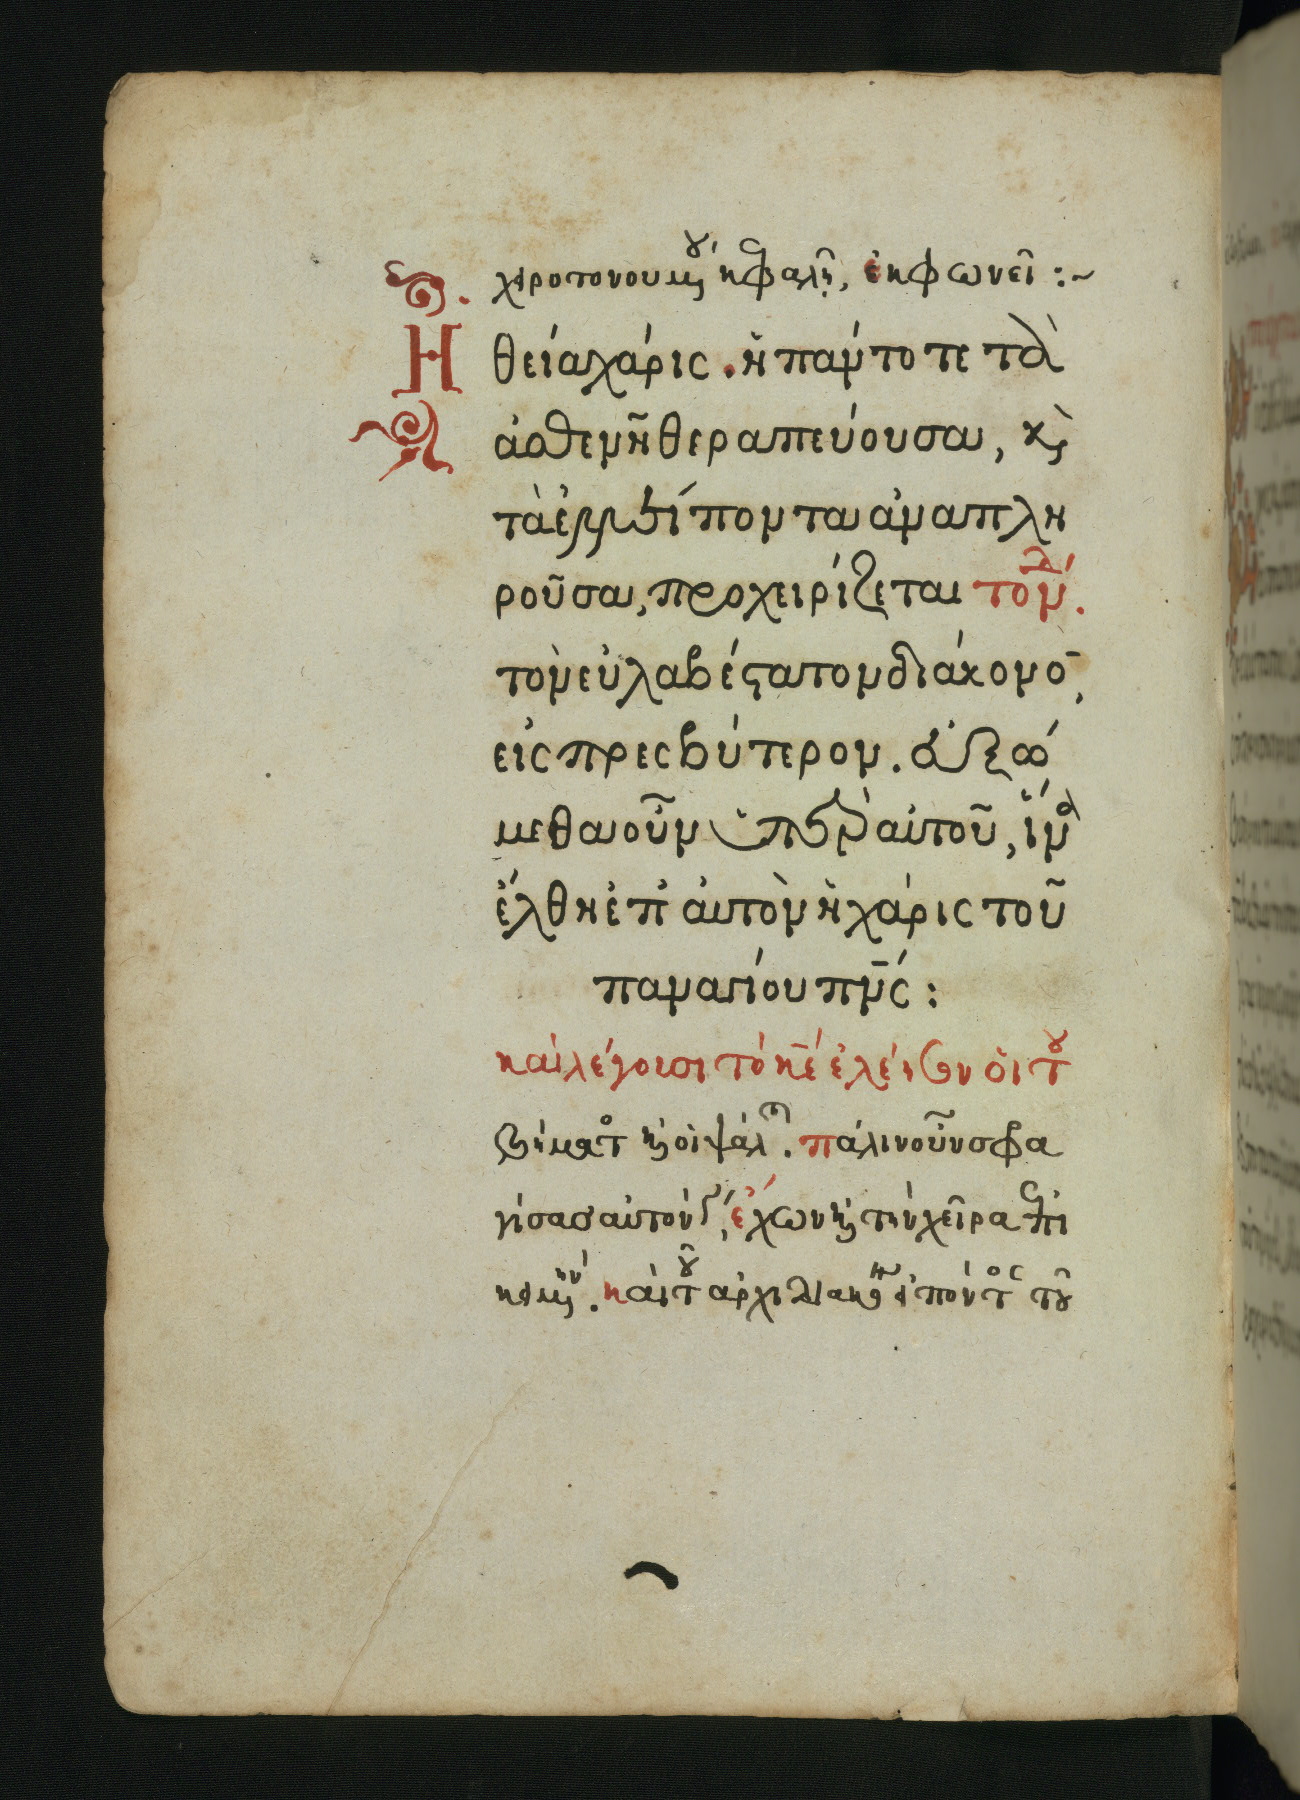 χειροτονουμένου κεφαλῇ, ἐκφωνεῖ :~
Η θεία χάρις . ἡ πάντοτε τὰ
ἀσθενῆ θεραπεύουσα, κ̀
τὰ ἐλλείποντα ἀναπλη
ροῦσα, προχειρίζεται τὸν δ΄.
τὸν εὐλαβέστατον διάκονο̄,
εἰς πρεσβύτερον. εὐξώ
μεθα οὖν ὑπὲρ αὐτοῦ, ἵνα
ἔλθη ἐπ' αὐτὸν ἡ χάρις τοῦ
παναγίου πν̅ς :
καὶ λέγουσι τό κ̅ε ἐλέησον οἱ τοῦ
βήματος κ̀ οἱ ψάλται . πάλιν οὖν σφρα
γίσας αὐτὸν γ΄, ἔχων κ̀ τὴν χεῖρα ἐπι
κειμένην . καὶ τοῦ ἀρχιδιακόνου εἰπόντος τοῦ